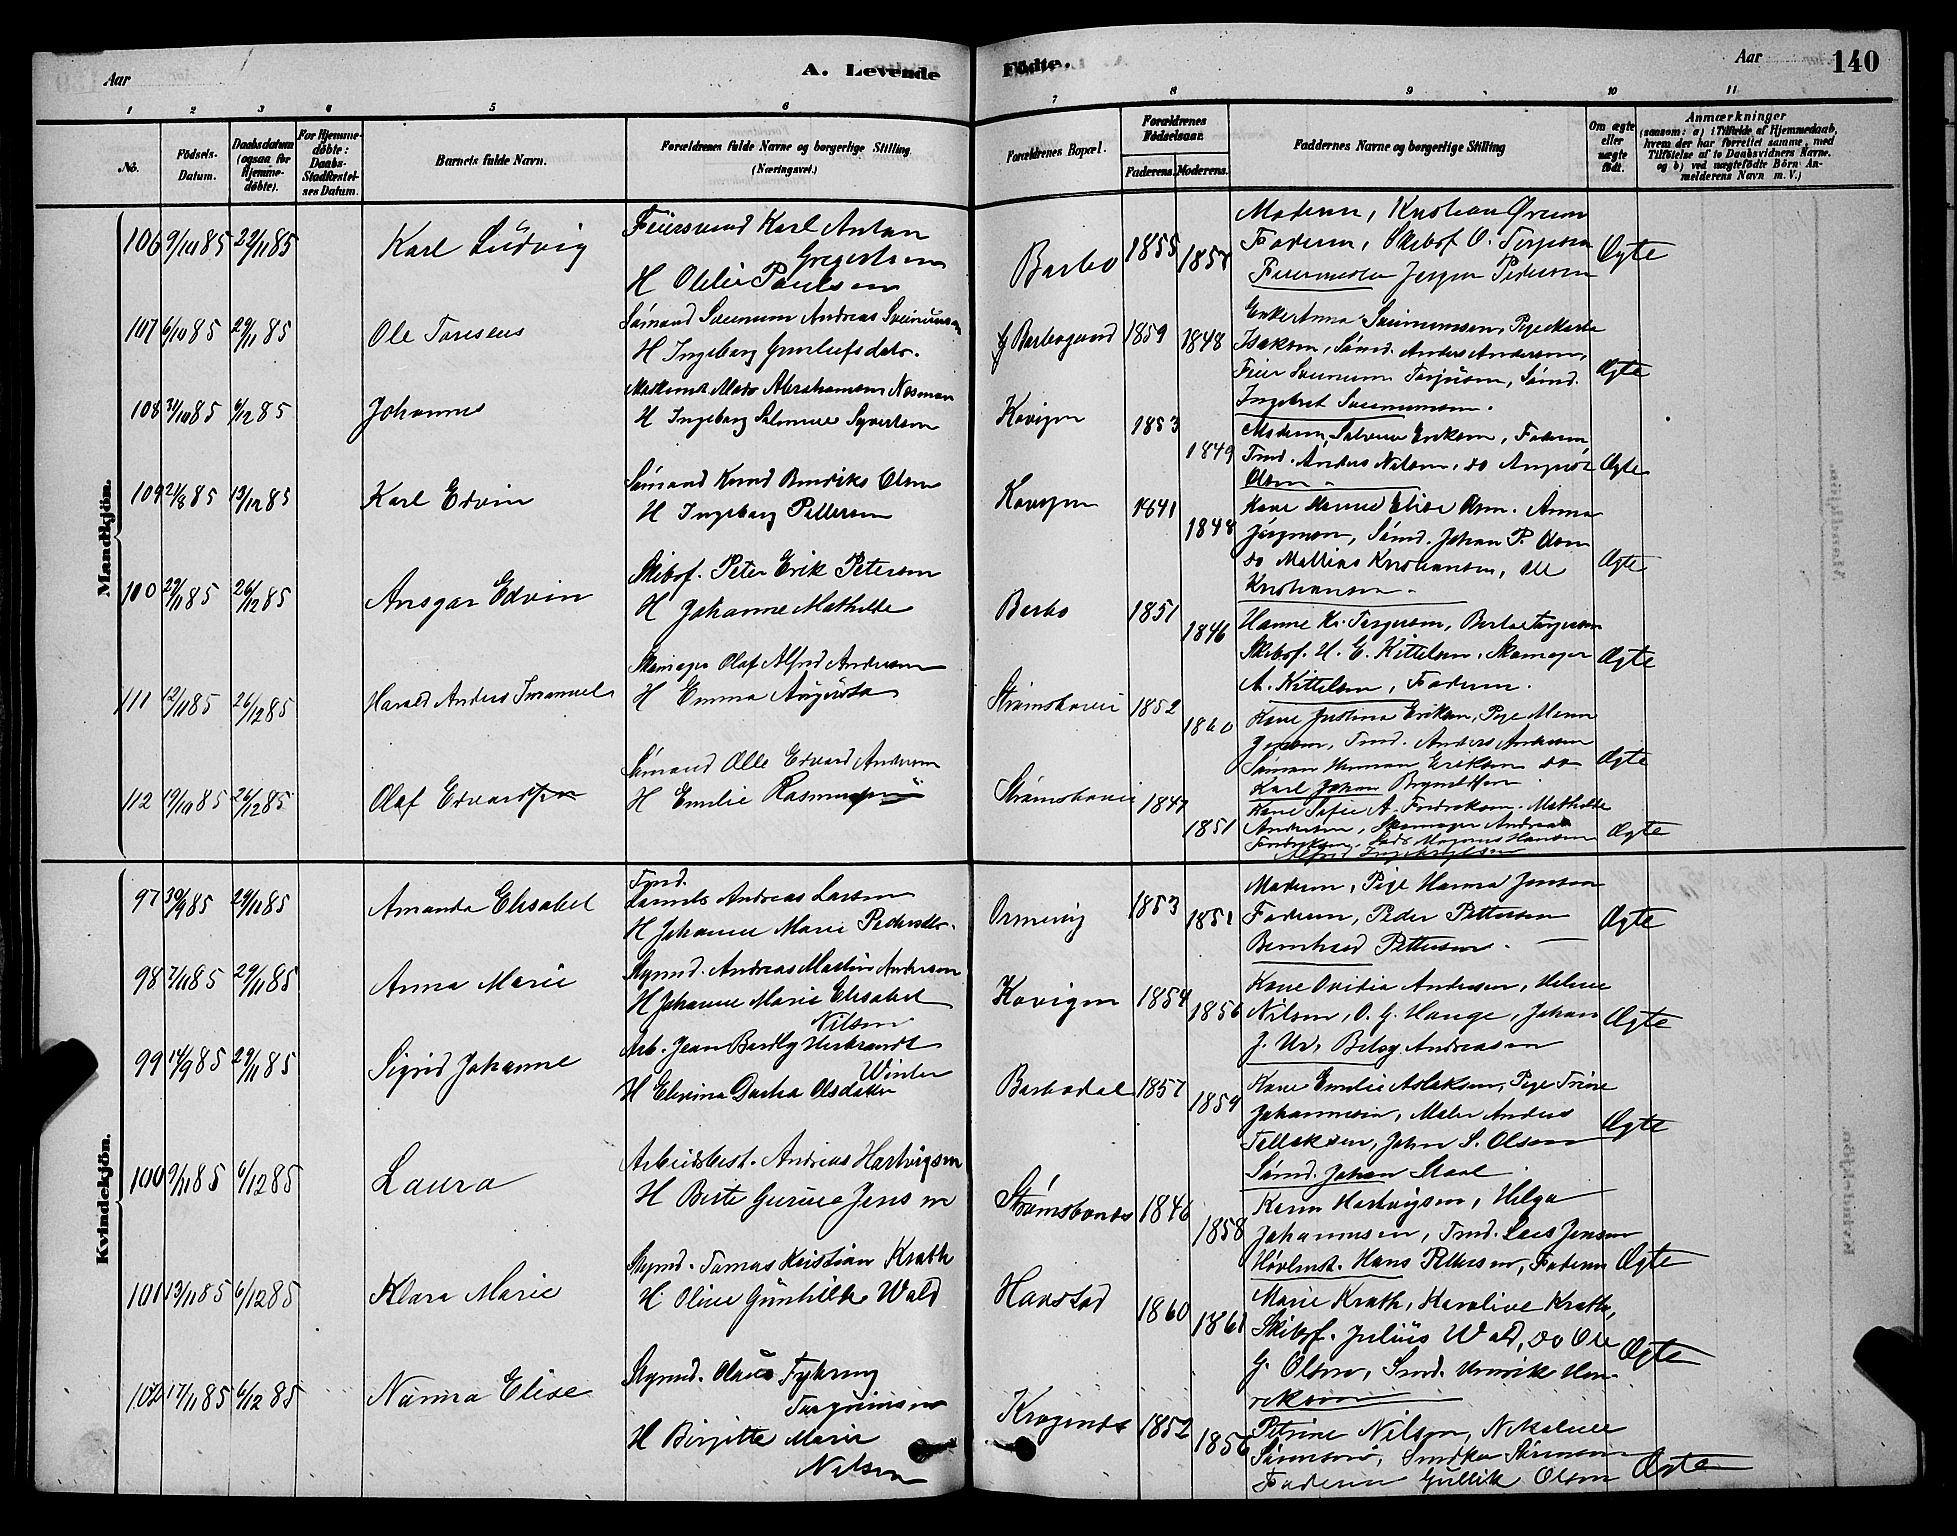 Aar
A. Levende
Fødte.
Aar
140
1 2 3 4 5 6 7 8 9 10 11
No.
Fødsels-Datum.
Daabsdatum (ogsaa for Hjemme-døbte).
For Hjemme-døbte: Daabs-Stadfæstel-ses Datum.
Barnets fulde Navn.
Forældrenes fulde Navne og borgerlige Stilling (Næringsvei.)
Forældrenes Bopæl.
Forældrenes Fødselsaar.
Faderens. Moderens.
Faddernes Navne og borgerlige Stilling
Om ægte eller uægte født.
Anmærkninger
(saasom: a) i Tilfælde af Hjemmedaab, hvem der har forrettet samme, med Tilføielse af to Daabsvidners Navne, og b) ved uægtefødte Börn An-melderens Navn m. V.)
Mandkjön.
106 9/10 85 22/11 85 Karl Ludvig
Feiersvend Karl Anton
Gregertsen
H Olilie Paulsen
Barbo 1855 1857
Moderen, Kristian
Faderen, Skibsf O. Terjesen
Feiermester Jørgen Pedersen
Ægte
107 6/10 85 29/11 85 Ole Toresens
Sömand Sveinum Andreas Sveinumsen
H Ingeborg Gunleifsdatr.
Barbogaard 1859 1848
Enke Anna Sveinumsen, Pige Marte
Isaksen, Sömd. Anders Andersen,
Feier Sveinum Terjusen, Sömd.
Ingebret Sveinumsen.
Ægte
108 31/10 85 6/12 85 Johannes
Mads Abrahamsen Næsman
H Ingeborg Salomine Syvertsen
Kavigen 1853 1849
Moderen, Eriksen, Faderen
Tmd. Anders Nilsen, do August
Olsen
Ægte
109 21/8 85 13/12 85 Karl Edvin
Sömand Knud Bendiks Olsen
H Ingeborg Pettersen
Kavigen 1841 1848
Kone Hanne Elise Olsen. Anna
Jörgensen, Sömd. Johan P. Olsen
do Mattias Kristiansen, Ole
Kristiansen
Ægte
100 29/11 85 26/12 85 Ansgar Edvin
Skibsf. Peter Erik Petersen
H Johanne Mathilde
Barbo 1851 1846
Hanne Kr. Terjesen, Berta Terjesen
Skibsf. H. E. Kittelsen, Skomager
A. Kittelsen, Faderen.
Ægte
111 12/11 85 26/12 85 Harald Anders Imanuel
Skomager Olaf Alfred Andersen
H Emma Augusta
Strømsbovei 1852 1860
Kone Justina Eriksen, Pige Maren
Jensen, Tmd. Anders Andersen
Söman Herman Eriksen do
Karl Johan
Ægte
112 19/10 85 26/12 85 Olaf Edvard
Sömand Olle Edvard Andersen
H Emilie Rasmusen
Strømsbovei 1847 1851
Kone Sofie A. Fredriksen. Mathilde
Andersen, Skomager Andreas
Fredriksen. Mads Magnus Hansen
Alfred
Ægte
Kvindekjön.
97 30/9 85 29/11 85 Amanda Elisabet
Tmd.
Andreas Larsen
H Johanne Marie Pedersdtr.
Ormevig 1853 1851
Moderen, Pige Hanna Jensen
Faderen, Peder Pettersen
Bernhard Pettersen.
Ægte
98 7/11 85 29/11 85 Anna Marie
Styrmd. Andreas Martin Andersen
H Johanne Marie Elisabet
Nilsen
Kavigen 1854 1856
Kone Ovidia Andersen, Helene
Nilsen, O. G. Hauge, Johan
J. Andreasen
Ægte
99 14/9 85 29/11 85 Sigrid Johanne
Arb. Jean Herbrandt
Winter
H Elevina Dortea Olsdatter
Barbodal 1857 1859
Kone Emilie Aslaksen, Pige Trine
Johannesen, Maler Anders
Tellaksen, John S. Olsen
Sömd. Johan Staal
Ægte
100 9/11 85 6/12 85 Laura
Arbeidsbest. Andreas Hartvigsen
H Berte Gurine Jensen
Strømsbunes 1846 1858
Karen Hartvigsen, Helga
Johannesen, Tmd. Lars Jensen
Høvlmst. Hans Pettersen, Faderen
Ægte
101 13/11 85 6/12 85 Klara Marie
Styrmd. Tomas Kristian Krath
H. Oline Gunhilde Wald
Havstad 1860 1861
Marie Krath, Karoline Krath,
Skibsf. Julius Wald, do Ole
G. Olsen, Smd. Henrik Hen-
riksen
Ægte
102 17/11 85 6/12 85 Nanna Elise
Styrmd. Olaus
Torgrimsen
H Birgitte Marie
Nilsen
Kragenes 1852 1856
Petrine Nilsen, Nikoline
Sørensen, Sørensen
Faderen Gullik Olsen
Ægte